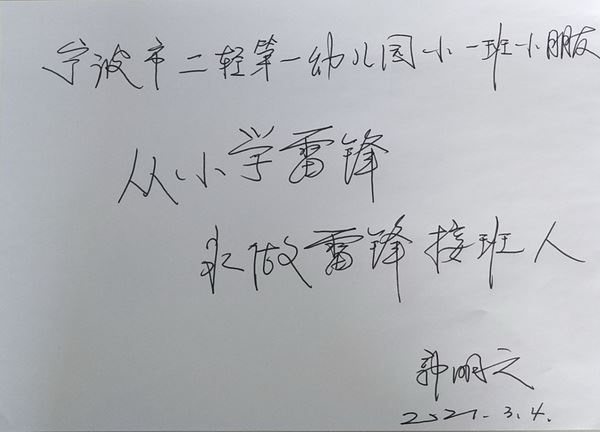 宁波市二轻第一幼儿园小一班小朋友
从小学雷锋
永做雷锋接班人
郭明义
2021.3.4.